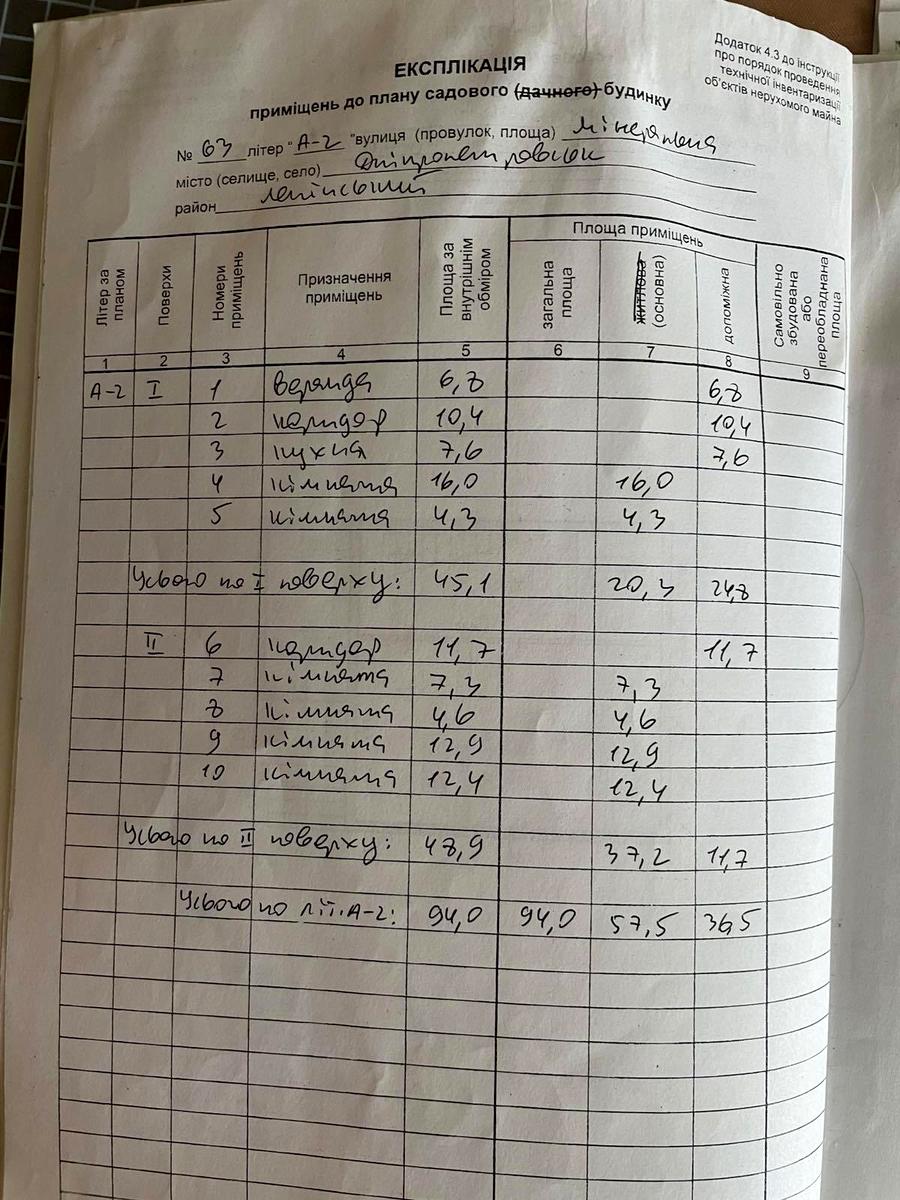 Додаток 4.3 до інструкції
про порядок проведення
технічної інвентаризації
об'єктів нерухомого майна
ЕКСПЛІКАЦІЯ
приміщень до плану садового (дачного) будинку
№ 63 літер "А-2" вулиця (провулок, площа)
місто (селище, село) Дніпропетровськ
район Ленінський
Літер за планом Поверхи Номери приміщень Призначення приміщень Площа за внутрішнім обміром Площа приміщень загальна площа житлова (основна) допоміжна Самовільно збудована або переобладнана площа
1 2 3 4 5 6 7 8 9
А-2 I 1 веранда 6,8 6,8
2 коридор 10,4 10,4
3 кухня 7,6 7,6
4 кімната 16,0 16,0
5 кімната 4,3 4,3
Усього по I поверху: 45,1 20,3 24,8
II 6 коридор 11,7 11,7
7 кімната 7,3 7,3
8 кімната 4,6 4,6
9 кімната 12,9 12,9
10 кімната 12,4 12,4
Усього по II поверху: 48,9 37,2 11,7
Усього по літ.А-2: 94,0 94,0 57,5 36,5